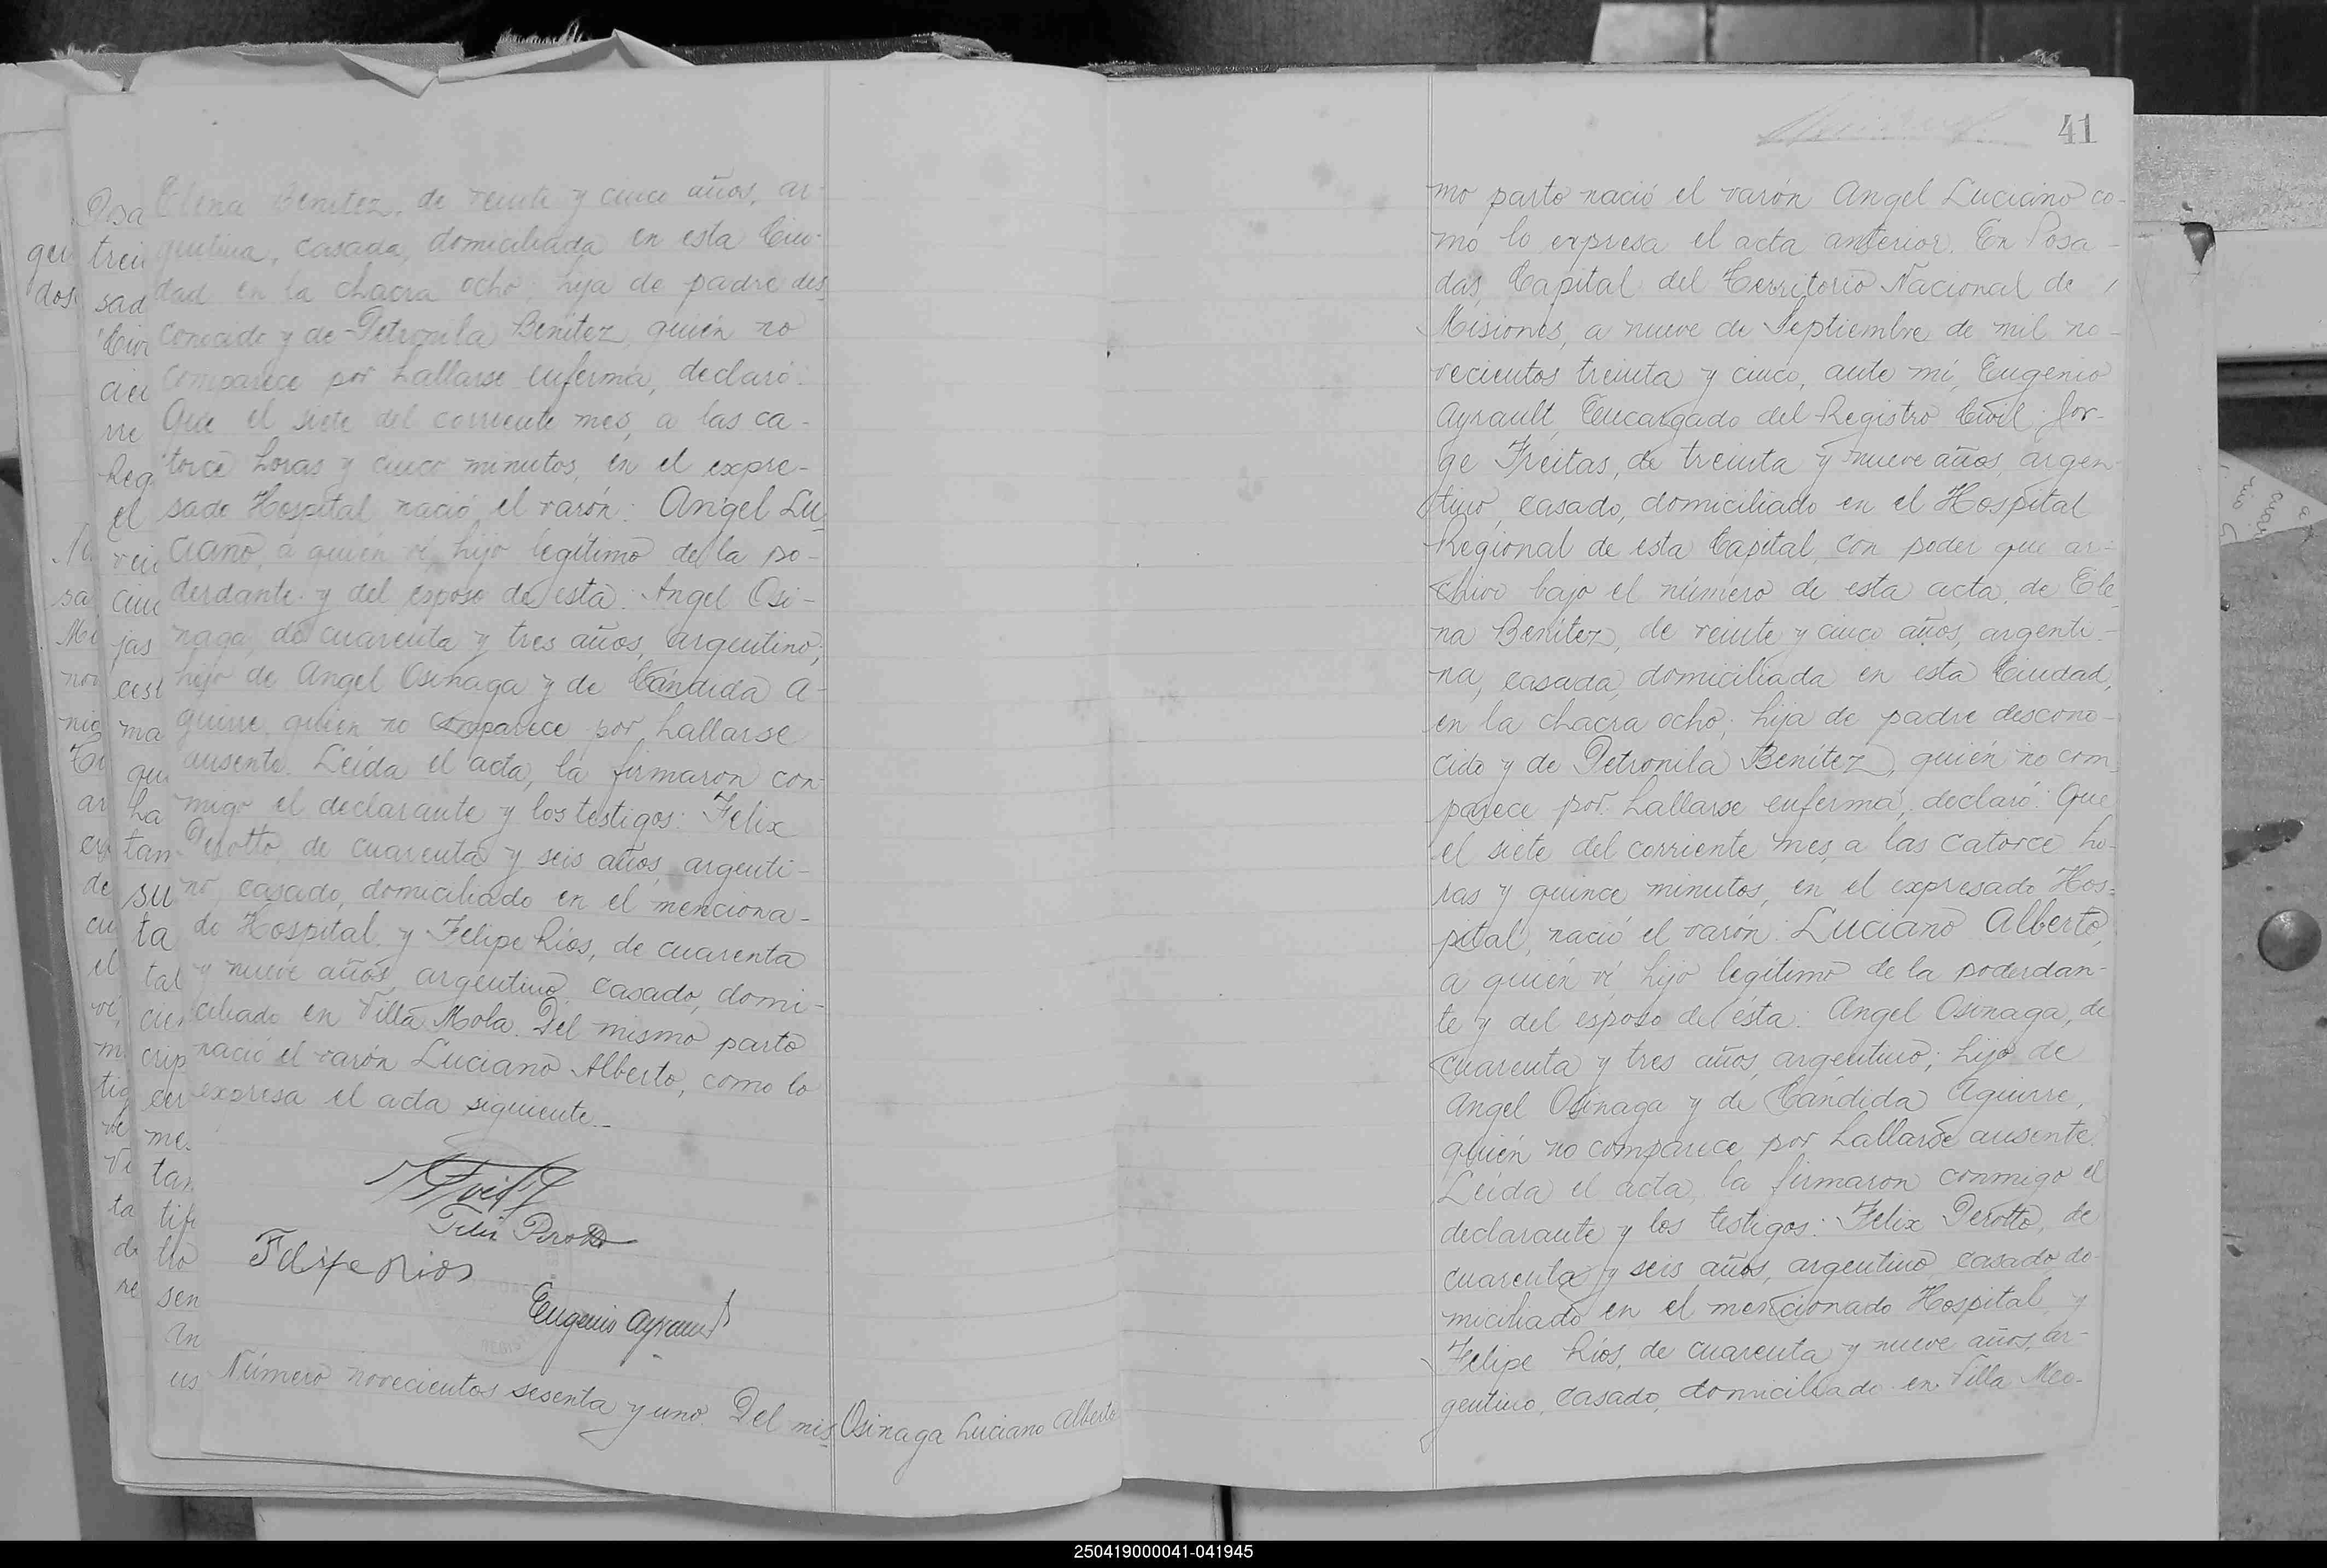 Elena Benitez, de veinte y cinco años, ar-
gentina, casada, domiciliada en esta Ciu-
dad en la chacra ocho; hija de padre des-
conocido y de Petronila Benítez, quién no
comparece por hallarse enferma, declaró:
Que el siete del corriente mes, a las ca-
torce horas y cinco minutos, en el expre-
sado Hospital nació el varón: Angel Lu-
ciano, a quién ví, hijo legítimo de la po-
derdante y del esposo de ésta: Angel Osi-
naga, de cuarenta y tres años, argentino;
hijo de Angel Osinaga y de Cándida A-
guirre, quién no comparece por hallarse
ausente. Leída el acta, la firmaron con-
migo el declarante y los testigos: Felix
Perotto, de cuarenta y seis años, argenti-
no, casado, domiciliado en el menciona-
do Hospital y Felipe Ríos, de cuarenta
y nueve años, argentino, casado, domi-
ciliado en Villa Mola. Del mismo parto
nació el varón Luciano Alberto, como lo
expresa el acta siguiente.-
Felix Perotto
Felipe Rios
Eugenio Ayrault
Número novecientos sesenta y uno. Del mis- Osinaga Luciano Alberto
41
mo parto nació el varón Angel Luciano co-
mo lo expresa el acta anterior. En Posa-
das, Capital del Territorio Nacional de
Misiones, a nueve de Septiembre de mil no-
vecientos treinta y cinco, ante mí, Eugenio
Ayrault, Encargado del Registro Civil, Jor-
ge Freitas, de treinta y nueve años, argen-
tino, casado, domiciliado en el Hospital
Regional de esta Capital, con poder que ar-
chivo bajo el número de esta acta, de Ele-
na Benítez, de veinte y cinco años, argenti-
na, casada, domiciliada en esta Ciudad,
en la chacra ocho; hija de padre descono-
cido y de Petronila Benítez, quién no com-
parece por hallarse enferma, declaró: Que
el siete del corriente mes, a las catorce ho-
ras y quince minutos, en el expresado Hos-
pital, nació el varón: Luciano Alberto,
a quién ví, hijo legítimo de la poderdan-
te y del esposo de ésta: Angel Osinaga, de
cuarenta y tres años, argentino; hijo de
Angel Osinaga y de Cándida Aguirre,
quién no comparece por hallarse ausente.
Leída el acta, la firmaron conmigo el
declarante y los testigos: Felix Perotto, de
cuarenta y seis años, argentino, casado, do-
miciliado en el mencionado Hospital, y
Felipe Ríos, de cuarenta y nueve años, ar-
gentino, casado, domiciliado en Villa Mo-
250419000041-041945